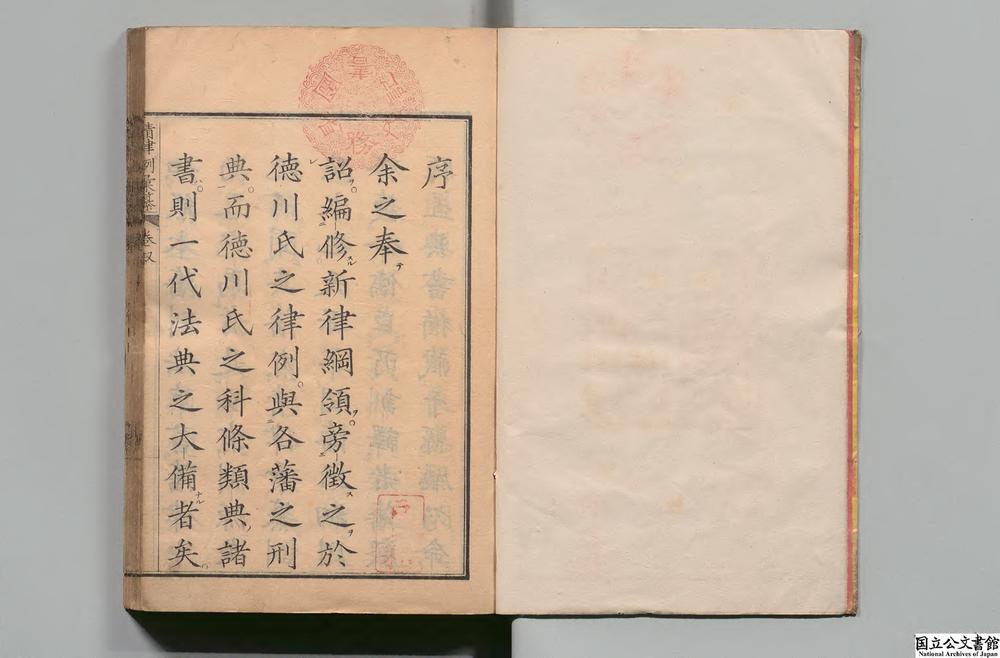 序
余之奉
詔編修新律綱領旁徴之於
徳川氏之律例與各藩之刑
典而徳川氏之科條類典諸
書則一代法典之大備者矣
清律例彙纂
国立公文書館
National Archives of Japan